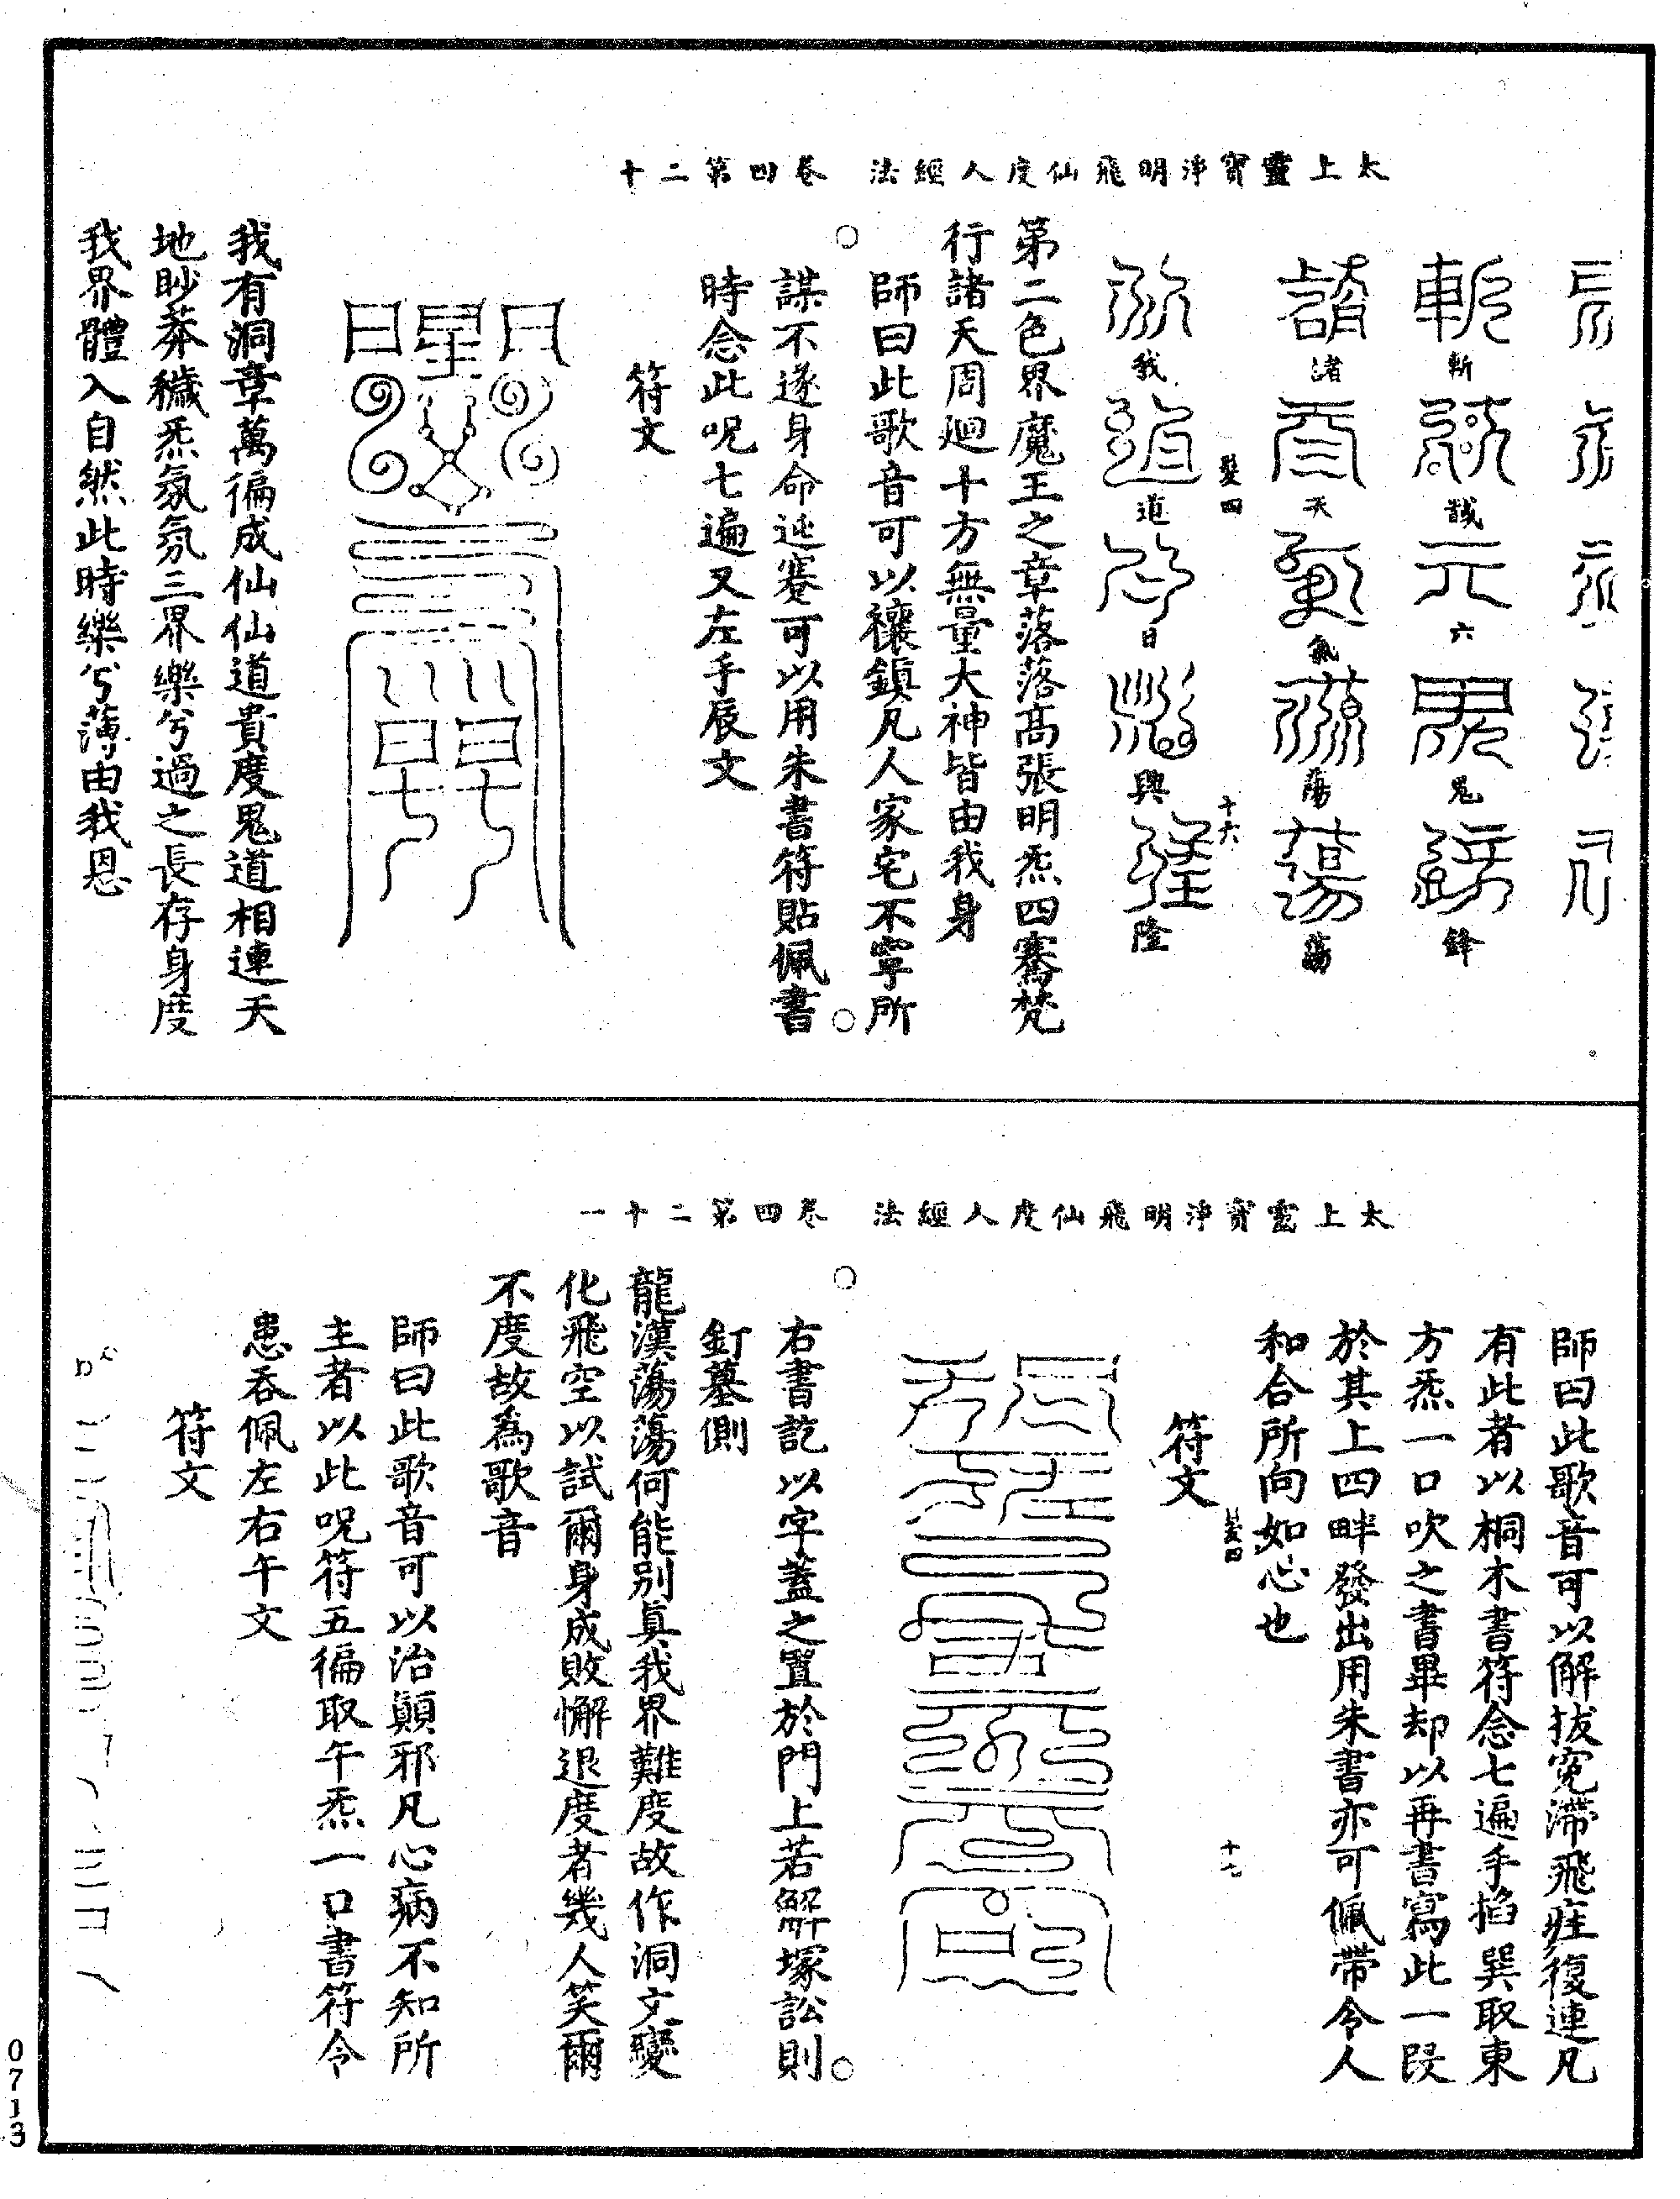 太上靈寶淨明飛仙度人經法　卷四第二十
斬 馘 六 鬼 鋒
諸 天 氣 蕩 蕩
髮四　十六
我 道 日 興 隆
第二色界魔王之章落落高張明炁四騫梵
行諸天周廻十方無量大神皆由我身
師曰此歌音可以禳鎮凡人家宅不寧所
謀不遂身命迍蹇可以用朱書符貼佩書
時念此呪七遍又左手辰文
符文
我有洞章萬徧成仙仙道貴度鬼道相連天
地眇莽穢炁氛氛三界樂兮過之長存身度
我界體入自然此時樂兮薄由我恩
太上靈寶淨明飛仙度人經法　卷四第二十一
師曰此歌音可以解拔寃滯飛疰復連凡
有此者以桐木書符念七遍手掐巽取東
方炁一口吹之書畢却以再書寫此一段
於其上四畔發出用朱書亦可佩帶令人
和合所向如心也
髮四　十七
符文
右書訖以字蓋之置於門上若解塚訟則
釘墓側
龍漢蕩蕩何能別眞我界難度故作洞文變
化飛空以試爾身成敗懈退度者幾人笑爾
不度故為歌音
師曰此歌音可以治顛邪凡心病不知所
主者以此呪符五徧取午炁一口書符令
患吞佩左右午文
符文
0713